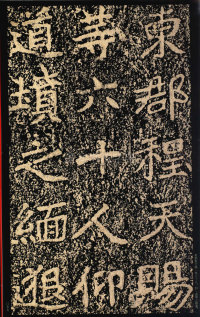 東郡程天賜
等六十人仰
道墳之緬邈